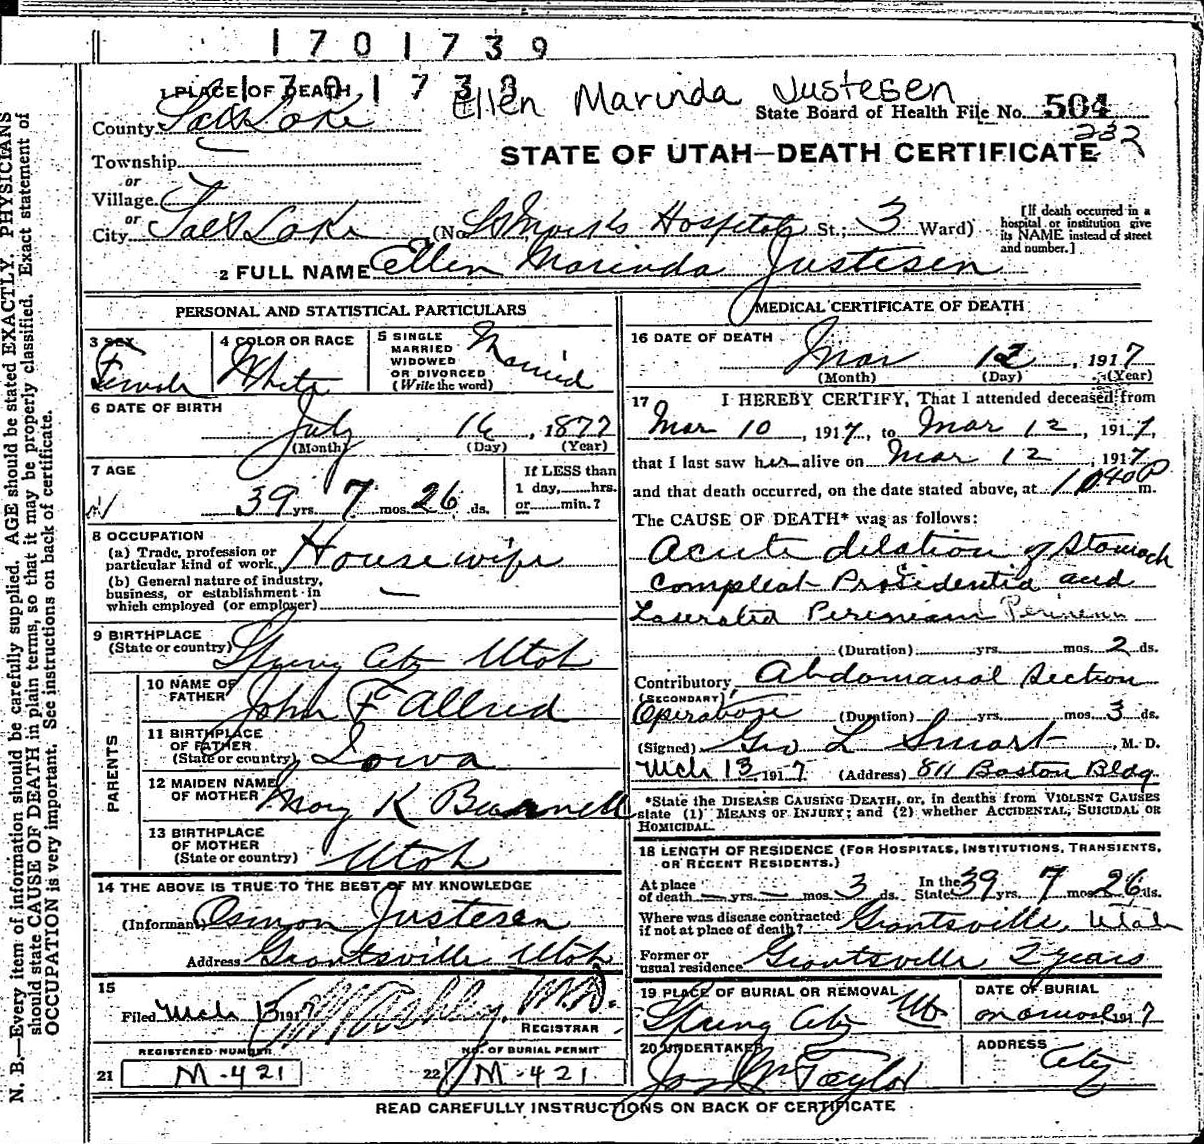 1701739
1701739
Ellen Marinda Justesen
1 PLACE OF DEATH
State Board of Health File No. 504
232
County Salt Lake
STATE OF UTAH—DEATH CERTIFICATE
Township
or
Village
or
City Salt Lake (No. Hospital St.; 3 Ward)
[If death occurred in a hospital or institution give its NAME instead of street and number.]
2 FULL NAME Ellen Marinda Justesen
PERSONAL AND STATISTICAL PARTICULARS
3 SEX
Female
4 COLOR OR RACE
White
5 SINGLE
MARRIED
WIDOWED
OR DIVORCED
(Write the word)
Married
6 DATE OF BIRTH
July 16, 1877
(Month) (Day) (Year)
7 AGE
39 yrs. 7 mos. 26 ds.
If LESS than
1 day, hrs.
or min.?
8 OCCUPATION
(a) Trade, profession or
particular kind of work. Housewife
(b) General nature of industry,
business, or establishment in
which employed (or employer) —
9 BIRTHPLACE
(State or country) Spring City Utah
PARENTS
10 NAME OF
FATHER John F Allred
11 BIRTHPLACE
OF FATHER
(State or country) Iowa
12 MAIDEN NAME
OF MOTHER Mary K
13 BIRTHPLACE
OF MOTHER
(State or country) Utah
14 THE ABOVE IS TRUE TO THE BEST OF MY KNOWLEDGE
(Informant) Osmon Justesen
Address Grantsville Utah
15
Filed Mch 13 1917 M.D.
REGISTRAR
REGISTERED NUMBER
21 M-421
NO. OF BURIAL PERMIT
22 M-421
MEDICAL CERTIFICATE OF DEATH
16 DATE OF DEATH
Mar 12, 1917
(Month) (Day) (Year)
17 I HEREBY CERTIFY, That I attended deceased from
Mar 10, 1917, to Mar 12, 1917,
that I last saw her alive on Mar 12, 1917
and that death occurred, on the date stated above, at 10 40 P m.
The CAUSE OF DEATH* was as follows:
Acute dilation of Stomach
Compleat Prosidentia and
Laserated Pereniam Perineum
(Duration) yrs. mos. 2 ds.
Contributory Abdomanal Section
(SECONDARY)
Operation (Duration) yrs. mos. 3 ds.
(Signed) Geo L Smart, M. D.
Mch 13 1917 (Address) 811 Boston Bldg.
*State the DISEASE CAUSING DEATH, or, in deaths from VIOLENT CAUSES
state (1) MEANS OF INJURY; and (2) whether ACCIDENTAL, SUICIDAL OR
HOMICIDAL.
18 LENGTH OF RESIDENCE (FOR HOSPITALS, INSTITUTIONS, TRANSIENTS,
OR RECENT RESIDENTS.)
At place
of death — yrs. — mos. 3 ds.
In the
State 39 yrs. 7 mos. 26 ds.
Where was disease contracted
if not at place of death? Grantsville, Utah
Former or
usual residence Grantsville 2 years
19 PLACE OF BURIAL OR REMOVAL
Spring City Ut
DATE OF BURIAL
1917
20 UNDERTAKER
Taylor
ADDRESS
City
READ CAREFULLY INSTRUCTIONS ON BACK OF CERTIFICATE
N. B.—Every item of information should be carefully supplied. AGE should be stated EXACTLY. PHYSICIANS
should state CAUSE OF DEATH in plain terms, so that it may be properly classified. Exact statement of
OCCUPATION is very important. See instructions on back of certificate.